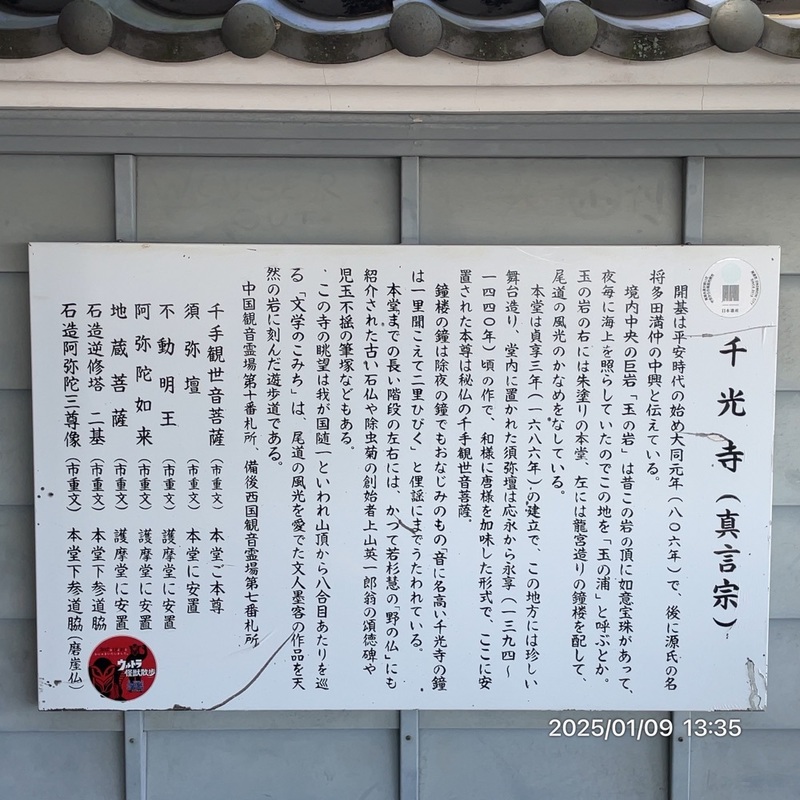 千光寺（真言宗）
開基は平安時代の始め大同元年（八〇六年）で、後に源氏の名
将多田満仲の中興と伝えている。
境内中央の巨岩「玉の岩」は昔この岩の頂に如意宝珠があって、
夜毎に海上を照らしていたのでこの地を「玉の浦」と呼ぶとか。
玉の岩の右には朱塗りの本堂、左には龍宮造りの鐘楼を配して、
尾道の風光のかなめをなしている。
本堂は貞享三年（一六八六年）の建立で、この地方には珍しい
舞台造り、堂内に置かれた須弥壇は応永から永享（一三九四～
一四四〇年）頃の作で、和様に唐様を加味した形式で、ここに安
置された本尊は秘仏の千手観世音菩薩。
鐘楼の鐘は除夜の鐘でもおなじみのもの「音に名高い千光寺の鐘
は一里聞こえて二里ひびく」と俚謡にまでうたわれている。
本堂までの長い階段の左右には、かつて若杉慧の「野の仏」にも
紹介された古い石仏や除虫菊の創始者上山英一郎翁の頌徳碑や
児玉不揺の筆塚などもある。
この寺の眺望は我が国随一といわれ山頂から八合目あたりを巡
る「文学のこみち」は、尾道の風光を愛でた文人墨客の作品を天
然の岩に刻んだ遊歩道である。
中国観音霊場第十番札所、備後西国観音霊場第七番札所
千手観世音菩薩（市重文）本堂ご本尊
須弥壇（市重文）本堂に安置
不動明王（市重文）護摩堂に安置
阿弥陀如来（市重文）護摩堂に安置
地蔵菩薩（市重文）護摩堂に安置
石造逆修塔　二基（市重文）本堂下参道脇
石造阿弥陀三尊像（市重文）本堂下参道脇（磨崖仏）
日本遺産
ウルトラ
怪獣散歩
2025/01/09 13:35